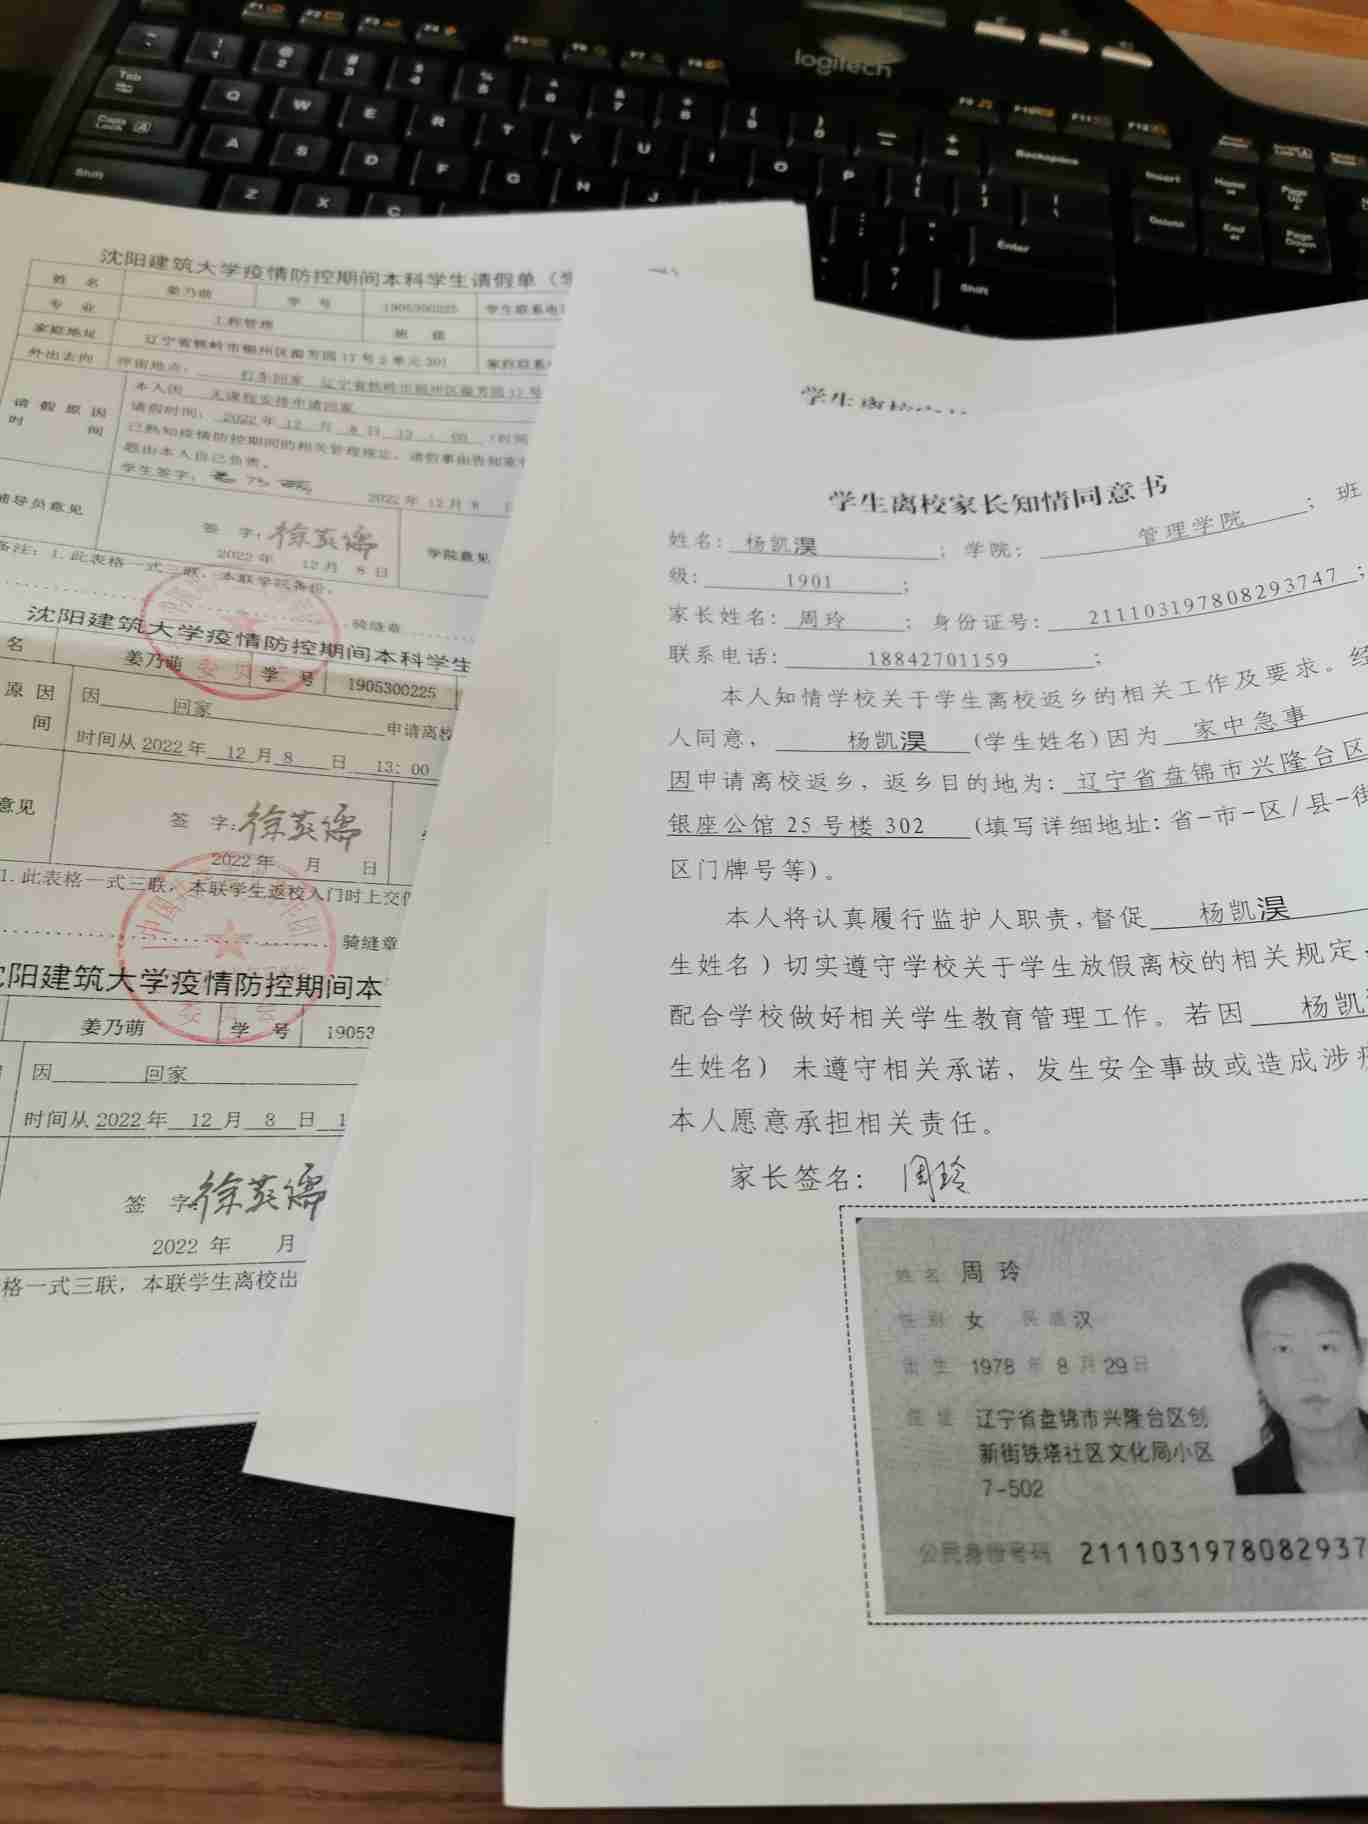 logitech
沈阳建筑大学疫情防控期间本科学生请假单
姓 名 姜乃萌 学 号 1905300225 学生联系电
专 业 工程管理 班 级
家庭地址
外出去向
请假原因 时间
本人因 无课程安排申请回家
请假时间: 2022年 12 月 8 日 13 : 00 (时间
已熟知疫情防控期间的相关管理规定,请假事由告知家
题由本人自己负责。
学生签字:
2022年 12月 8 日
辅导员意见 签 字: 学院意见
2022年 12月 8日
备注: 1.此表格一式三联, 本联学院备份。
骑缝章
沈阳建筑大学疫情防控期间本科学生
名 姜乃萌 学 号 1905300225
原因 因 回家 申请离校
间 时间从2022年 12 月 8 日 13: 00
意见 签 字:
2022年 月 日
1.此表格一式三联, 本联学生返校入门时上交
骑缝章
沈阳建筑大学疫情防控期间本
姜乃萌 学 号 19053
因 回家
时间从 2022 年 12 月 8 日 1
签 字:
2022 年 月
格一式三联, 本联学生离校出
学生离校家长知情同意书
姓名: 杨凯淏 ; 学院: 管理学院 ; 班
级: 1901 ;
家长姓名: 周玲 ; 身份证号: 211103197808293747 ;
联系电话: 18842701159 ;
本人知情学校关于学生离校返乡的相关工作及要求。经
人同意, 杨凯淏 (学生姓名)因为 家中急事
因申请离校返乡, 返乡目的地为: 辽宁省盘锦市兴隆台区
银座公馆 25 号楼 302 (填写详细地址: 省-市-区/县-街
区门牌号等)。
本人将认真履行监护人职责,督促 杨凯淏
生姓名)切实遵守学校关于学生放假离校的相关规定
配合学校做好相关学生教育管理工作。若因 杨凯
生姓名) 未遵守相关承诺, 发生安全事故或造成涉
本人愿意承担相关责任。
家长签名: 周玲
姓名 周玲
性别 女 民族 汉
出生 1978 年 8 月 29 日
住址 辽宁省盘锦市兴隆台区创
新街铁塔社区文化局小区
7-502
公民身份号码 2111031978082937